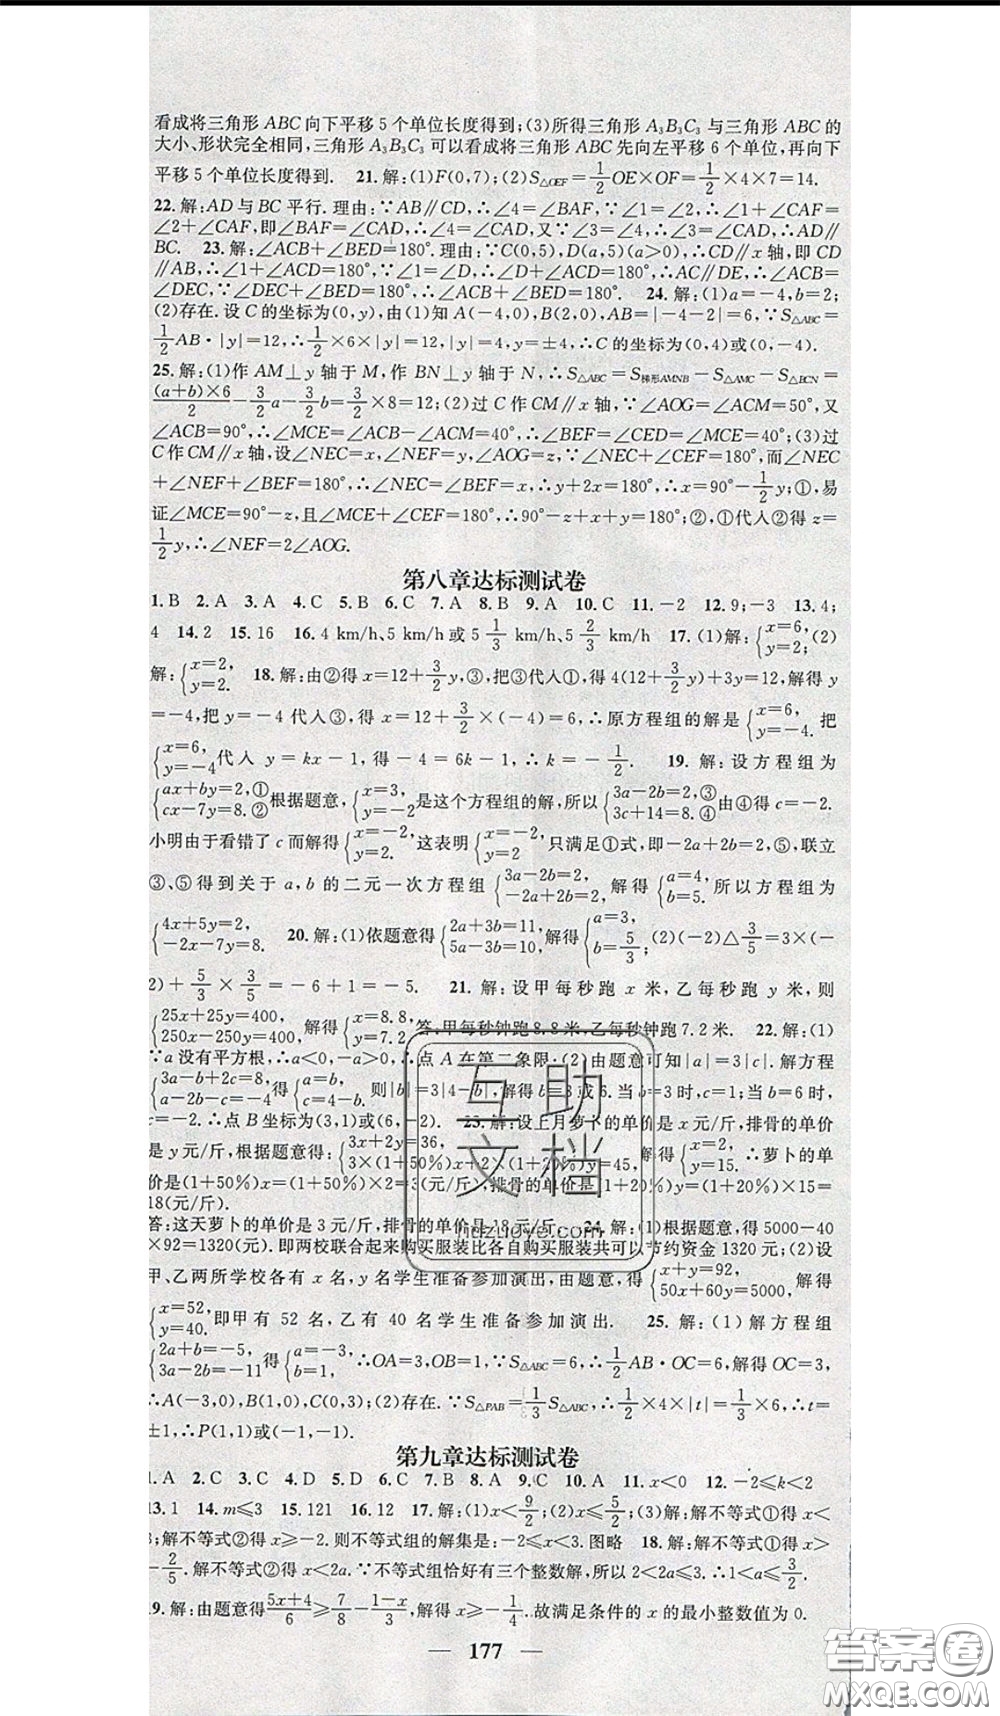 看成将三角形 ABC 向下平移 5 个单位长度得到;(3)所得三角形 A₃B₃C₃ 与三角形 ABC 的
大小、形状完全相同,三角形 A₃B₃C₃ 可以看成将三角形 ABC 先向左平移 6 个单位,再向下
平移 5 个单位长度得到. 21.解:(1)F(0,7);(2)S△OEF=1/2 OE×OF=1/2×4×7=14.
22.解:AD 与 BC 平行.理由:∵AB∥CD,∴∠4=∠BAF,∵∠1=∠2,∴∠1+∠CAF=
∠2+∠CAF,即∠BAF=∠CAD,∴∠4=∠CAD,又∵∠3=∠4,∴∠3=∠CAD,∴AD∥
BC. 23.解:∠ACB+∠BED=180°.理由:∵C(0,5),D(a,5)(a>0),∴CD∥x 轴,即 CD
∥AB,∴∠1+∠ACD=180°,∵∠1=∠D,∴∠D+∠ACD=180°,∴AC∥DE,∴∠ACB=
∠DEC,∵∠DEC+∠BED=180°,∴∠ACB+∠BED=180°. 24.解:(1)a=-4,b=2;
(2)存在.设 C 的坐标为(0,y),由(1)知 A(-4,0),B(2,0),AB=|-4-2|=6,∵S△ABC=
1/2 AB·|y|=12,∴1/2×6×|y|=12,|y|=4,y=±4,∴C 的坐标为(0,4)或(0,-4).
25.解:(1)作 AM⊥y 轴于 M,作 BN⊥y 轴于 N,∴S△ABC=S梯形AMNB-S△AMC-S△BCN=
(a+b)×6/2-3/2 a-3/2 b=3/2×8=12;(2)过 C 作 CM∥x 轴,∵∠AOG=∠ACM=50°,又
∠ACB=90°,∴∠MCE=∠ACB-∠ACM=40°,∴∠BEF=∠CED=∠MCE=40°;(3)过
C 作 CM∥x 轴,设∠NEC=x,∠NEF=y,∠AOG=z,∵∠NEC+∠CEF=180°,而∠NEC
+∠NEF+∠BEF=180°,∴∠NEC=∠BEF=x,∴y+2x=180°,∴x=90°-1/2 y;①,易
证∠MCE=90°-z,且∠MCE+∠CEF=180°,∴90°-z+x+y=180°;②,①代入②得 z=
1/2 y,∴∠NEF=2∠AOG.
第八章达标测试卷
1.B 2.A 3.A 4.C 5.B 6.C 7.A 8.B 9.A 10.C 11.-2 12.9;-3 13.4;
4 14.2 15.16 16.4 km/h、5 km/h 或 5 1/3 km/h、5 2/3 km/h 17.(1)解:{x=6, y=2;(2)
解:{x=2, y=2. 18.解:由②得 x=12+3/2 y,③,把③代入①,得 4(12+3/2 y)+3y=12,解得 y
=-4,把 y=-4 代入③,得 x=12+3/2×(-4)=6,∴原方程组的解是{x=6, y=-4. 把
{x=6, y=-4 代入 y=kx-1,得-4=6k-1,∴k=-1/2. 19.解:设方程组为
{ax+by=2,① cx-7y=8.② 根据题意,{x=3, y=-2 是这个方程组的解,所以{3a-2b=2,③ 3c+14=8.④ 由④得 c=-2.
小明由于看错了 c 而解得{x=-2, y=2. 这表明{x=-2, y=2 只满足①式,即-2a+2b=2,⑤,联立
③、⑤得到关于 a,b 的二元一次方程组{3a-2b=2, -2a+2b=2, 解得{a=4, b=5. 所以方程组为
{4x+5y=2, -2x-7y=8. 20.解:(1)依题意得{2a+3b=11, 5a-3b=10, 解得{a=3, b=5/3;(2)(-2)△3/5=3×(-
2)+5/3×3/5=-6+1=-5. 21.解:设甲每秒跑 x 米,乙每秒跑 y 米,则
{25x+25y=400, 250x-250y=400, 解得{x=8.8, y=7.2. 答:甲每秒钟跑 8.8 米,乙每秒钟跑 7.2 米. 22.解:(1)
∵a 没有平方根,∴a<0,-a>0,∴点 A 在第二象限;(2)由题意可知|a|=3|c|.解方程
{3a-b+2c=8, a-2b-c=-4 得{a=b, c=4-b. 则|b|=3|4-b|,解得 b=3 或 6.当 b=3 时,c=1;当 b=6 时,
c=-2.∴点 B 坐标为(3,1)或(6,-2). 23.解:设上月萝卜的单价是 x 元/斤,排骨的单价
是 y 元/斤,根据题意得:{3x+2y=36, 3×(1+50%)x+2×(1+20%)y=45, 解得{x=2, y=15. ∴萝卜的单
价是(1+50%)x=(1+50%)×2=3(元/斤),排骨的单价是(1+20%)y=(1+20%)×15=
18(元/斤).
答:这天萝卜的单价是 3 元/斤,排骨的单价是 18 元/斤. 24.解:(1)根据题意,得 5000-40
×92=1320(元).即两校联合起来购买服装比各自购买服装共可以节约资金 1320 元;(2)设
甲、乙两所学校各有 x 名,y 名学生准备参加演出,由题意,得{x+y=92, 50x+60y=5000, 解得
{x=52, y=40. 即甲有 52 名,乙有 40 名学生准备参加演出. 25.解:(1)解方程组
{2a+b=-5, 3a-2b=-11 得{a=-3, b=1, ∴OA=3,OB=1,∵S△ABC=6,∴1/2 AB·OC=6,解得 OC=3,
∴A(-3,0),B(1,0),C(0,3);(2)存在.∵S△PAB=1/3 S△ABC,∴1/2×4×|t|=1/3×6,∴t=
±1,∴P(1,1)或(1,-1).
第九章达标测试卷
1.A 2.C 3.C 4.D 5.D 6.C 7.B 8.A 9.C 10.A 11.x<0 12.-2≤k<2
13.1 14.m≤3 15.121 16.12 17.解:(1)x<9/2;(2)x≤5/2;(3)解:解不等式①得 x<
3;解不等式②得 x≥-2.则不等式组的解集是:-2≤x<3.图略 18.解:解不等式①得 x>
-2/5.解不等式②得 x<2a.∵不等式组恰好有三个整数解,所以 2<2a≤3.∴1<a≤3/2.
19.解:由题意得 5x+4/6≥7/8-1-x/3,解得 x≥-1/4.故满足条件的 x 的最小整数值为 0.
— 177 —
互助
文档
huzuoye.com
答案卷
MXQE.COM